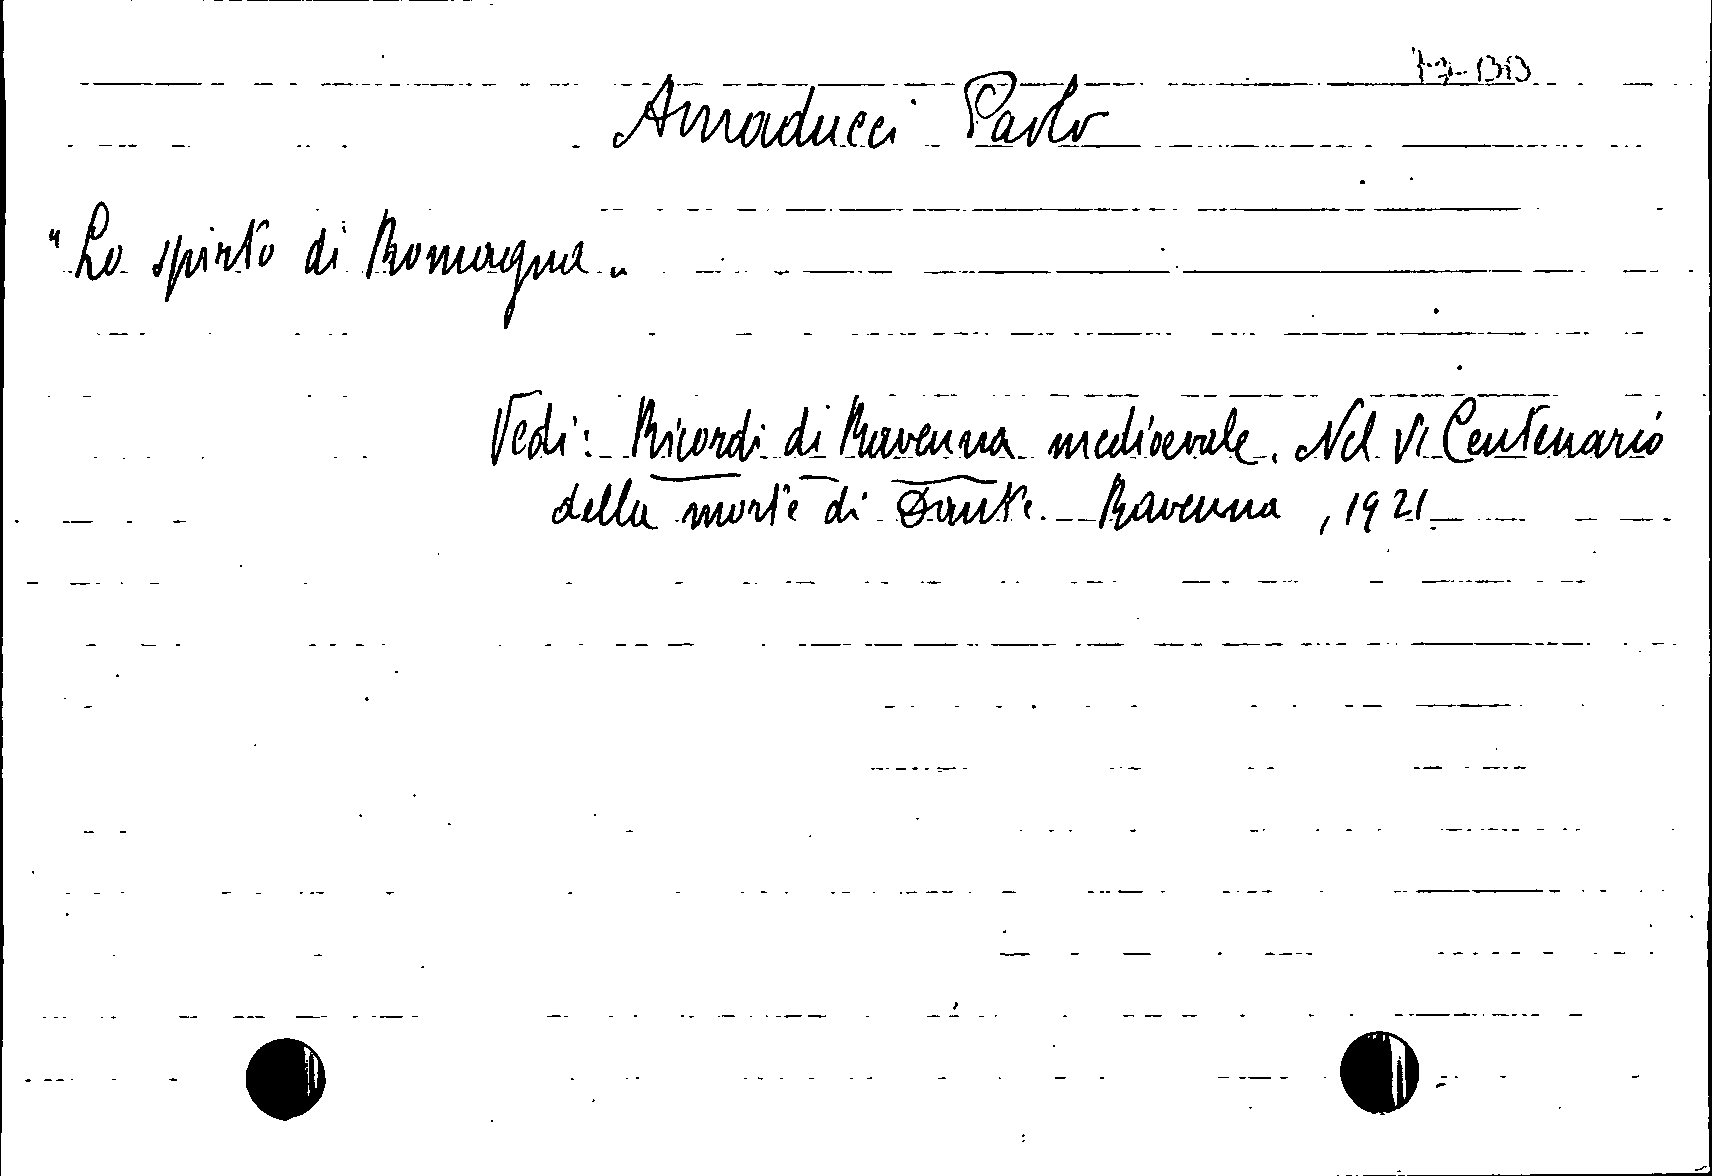 Amaducci Paolo
"Lo spirto di Romagna„
Vedi: Ricordi di Ravenna medioevale. Nel VI Centenario
della morte di Dante. Ravenna, 1921